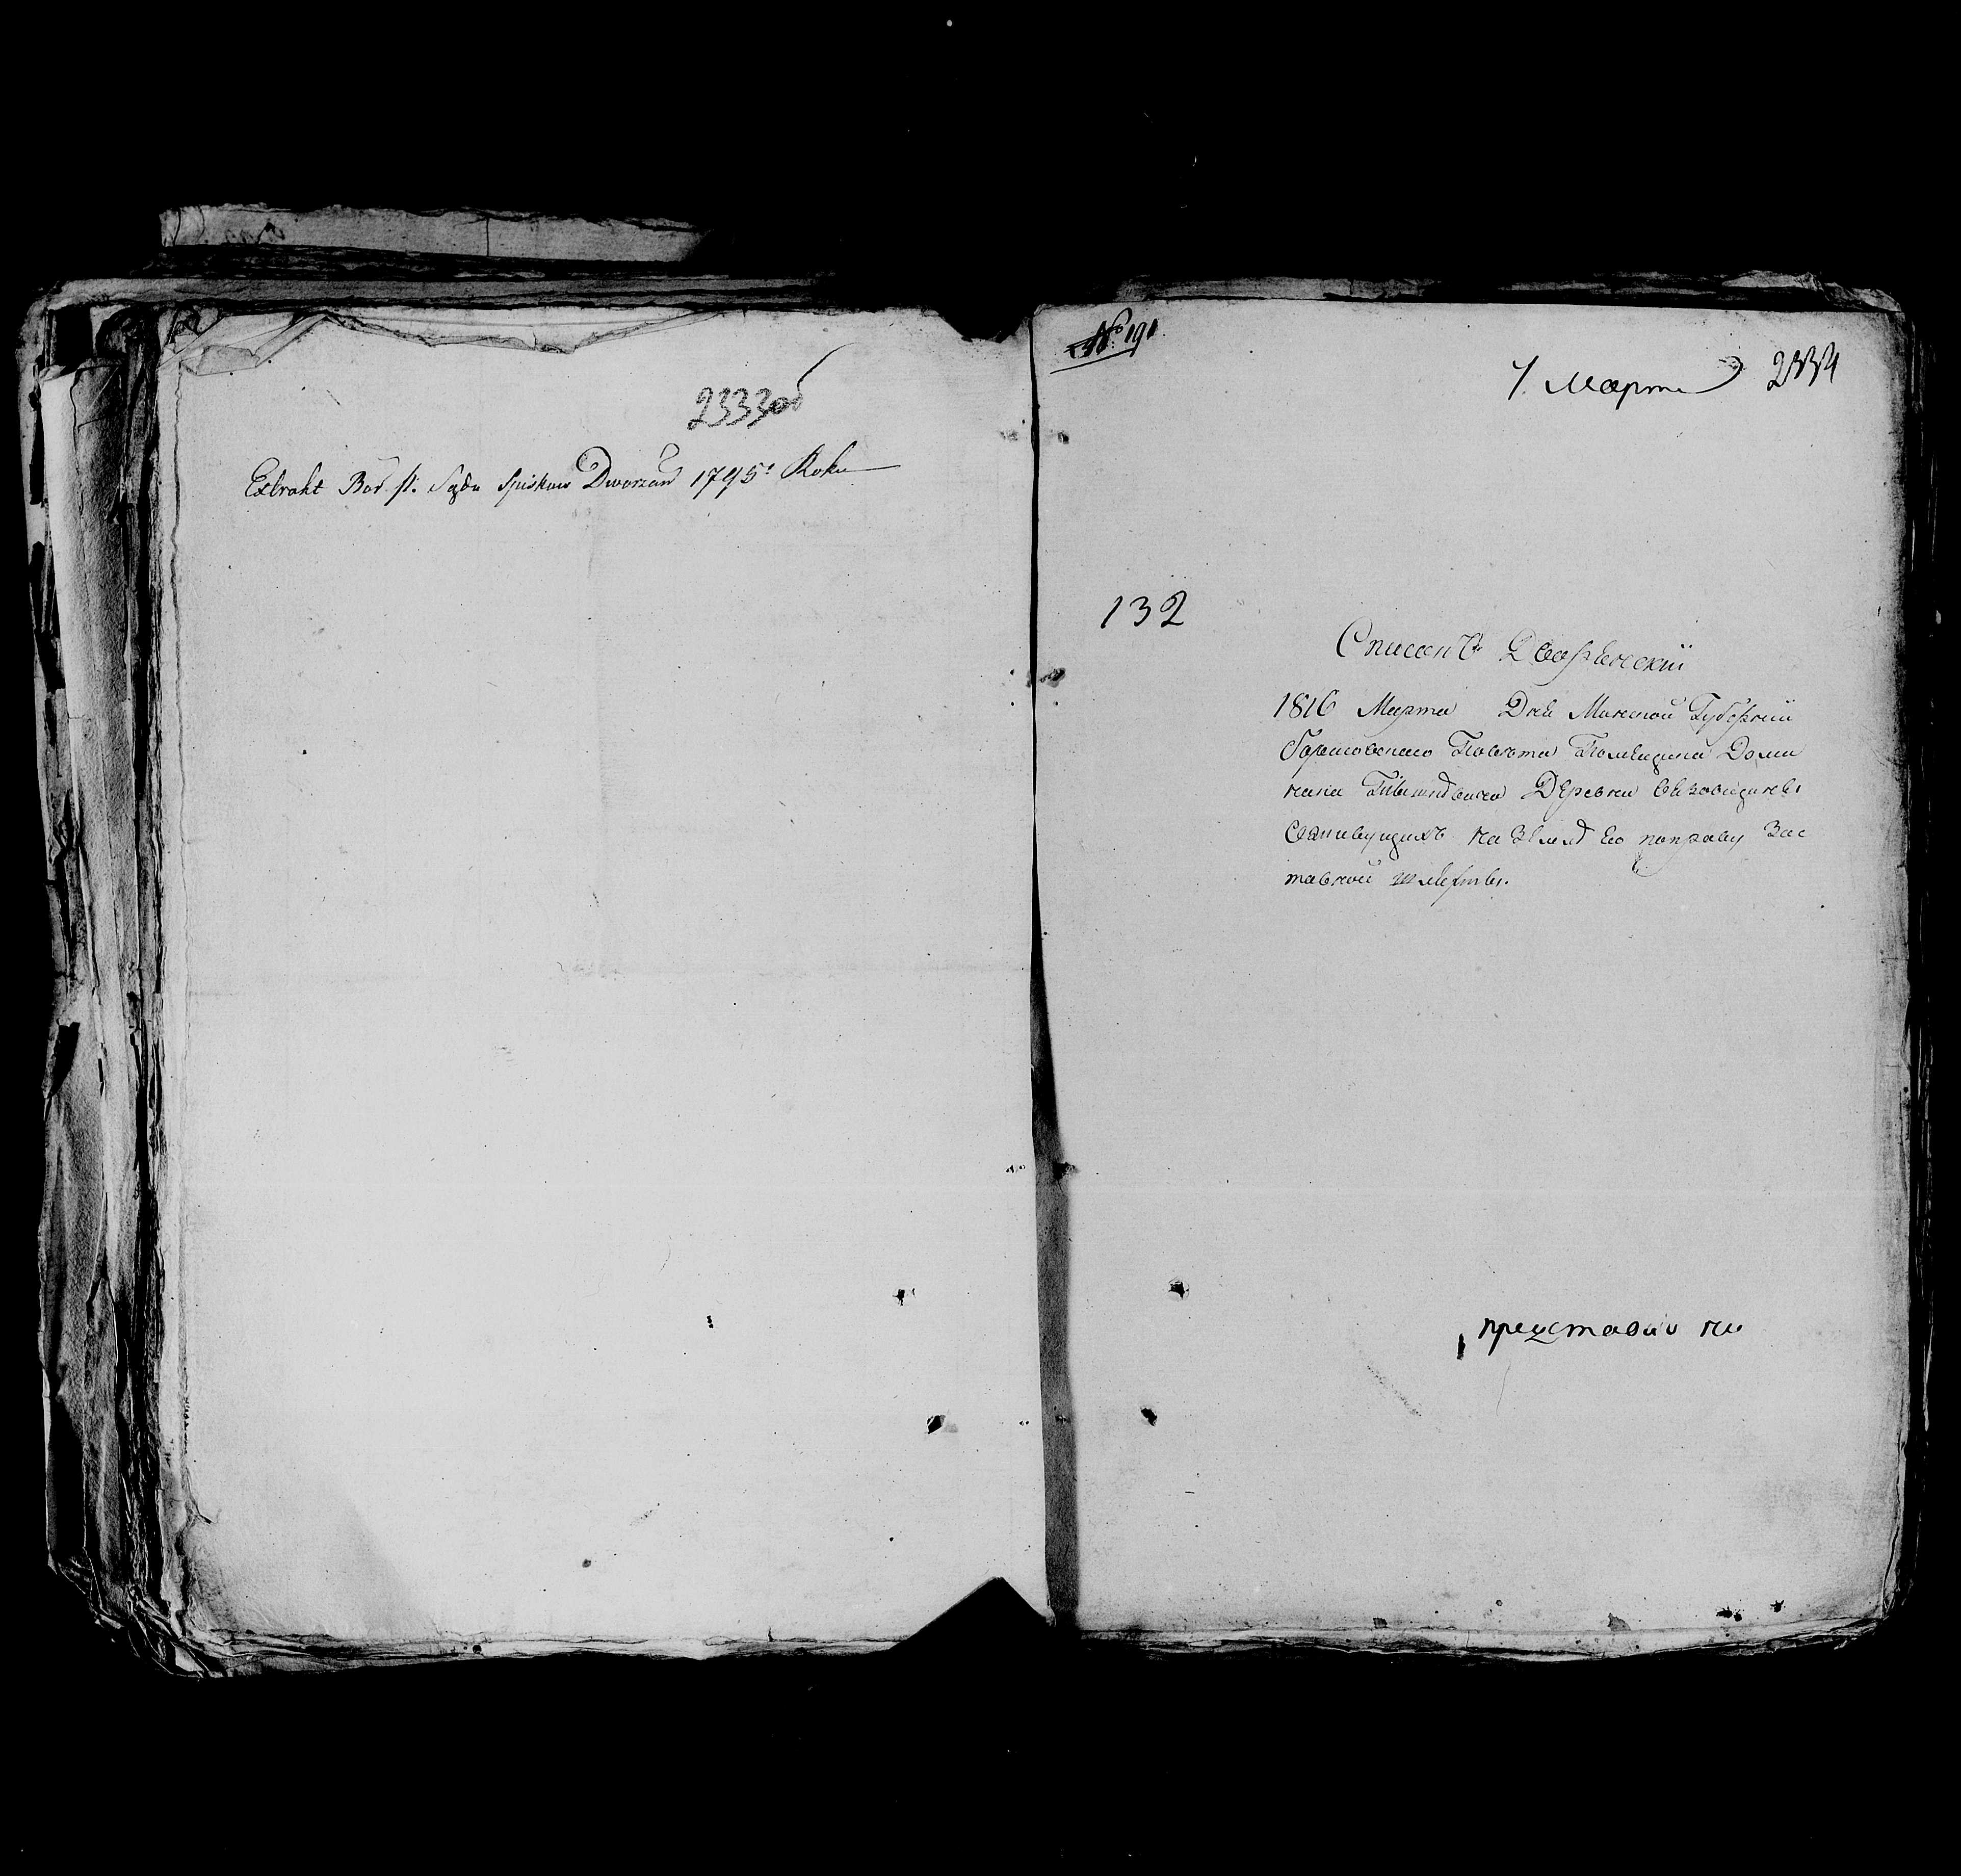 2333об
Extrakt Bor. Sądu Spiskow Dworzan 1795º Roku
№ 191
7 Марта 2334
132
Списокъ Дворянский
1816 Марта Дня Минской Губернии
Борисовского Повета Помещика Доми
ника Деревни
на Земле Его по праву Зас
тавной
представил